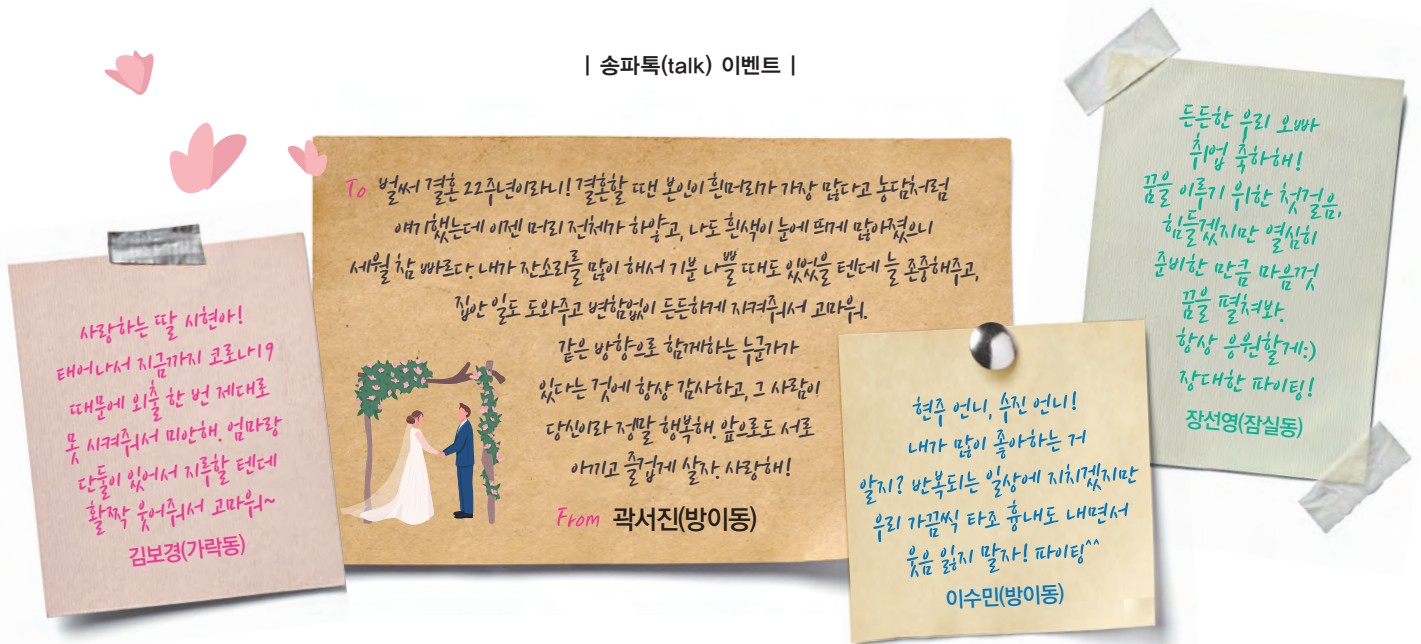 | 송파톡(talk) 이벤트 |
사랑하는 딸 시현아!
태어나서 지금까지 코로나19
때문에 외출 한 번 제대로
못 시켜줘서 미안해. 엄마랑
단둘이 있어서 지루할 텐데
활짝 웃어줘서 고마워~
김보경(가락동)
To 벌써 결혼 22주년이라니! 결혼할 땐 본인이 흰머리가 가장 많다고 농담처럼
얘기했는데 이젠 머리 전체가 하얗고, 나도 흰색이 눈에 띄게 많아졌으니
세월 참 빠르다. 내가 잔소리를 많이 해서 기분 나쁠 때도 있었을 텐데 늘 존중해주고,
집안 일도 도와주고 변함없이 든든하게 지켜줘서 고마워.
같은 방향으로 함께하는 누군가가
있다는 것에 항상 감사하고, 그 사람이
당신이라 정말 행복해. 앞으로도 서로
아끼고 즐겁게 살자. 사랑해!
From 곽서진(방이동)
현주 언니, 수진 언니!
내가 많이 좋아하는 거
알지? 반복되는 일상에 지치겠지만
우리 가끔씩 타조 흉내도 내면서
웃음 잃지 말자! 파이팅^^
이수민(방이동)
든든한 우리 오빠
취업 축하해!
꿈을 이루기 위한 첫걸음,
힘들겠지만 열심히
준비한 만큼 마음껏
꿈을 펼쳐봐.
항상 응원할게:)
장대한 파이팅!
장선영(잠실동)